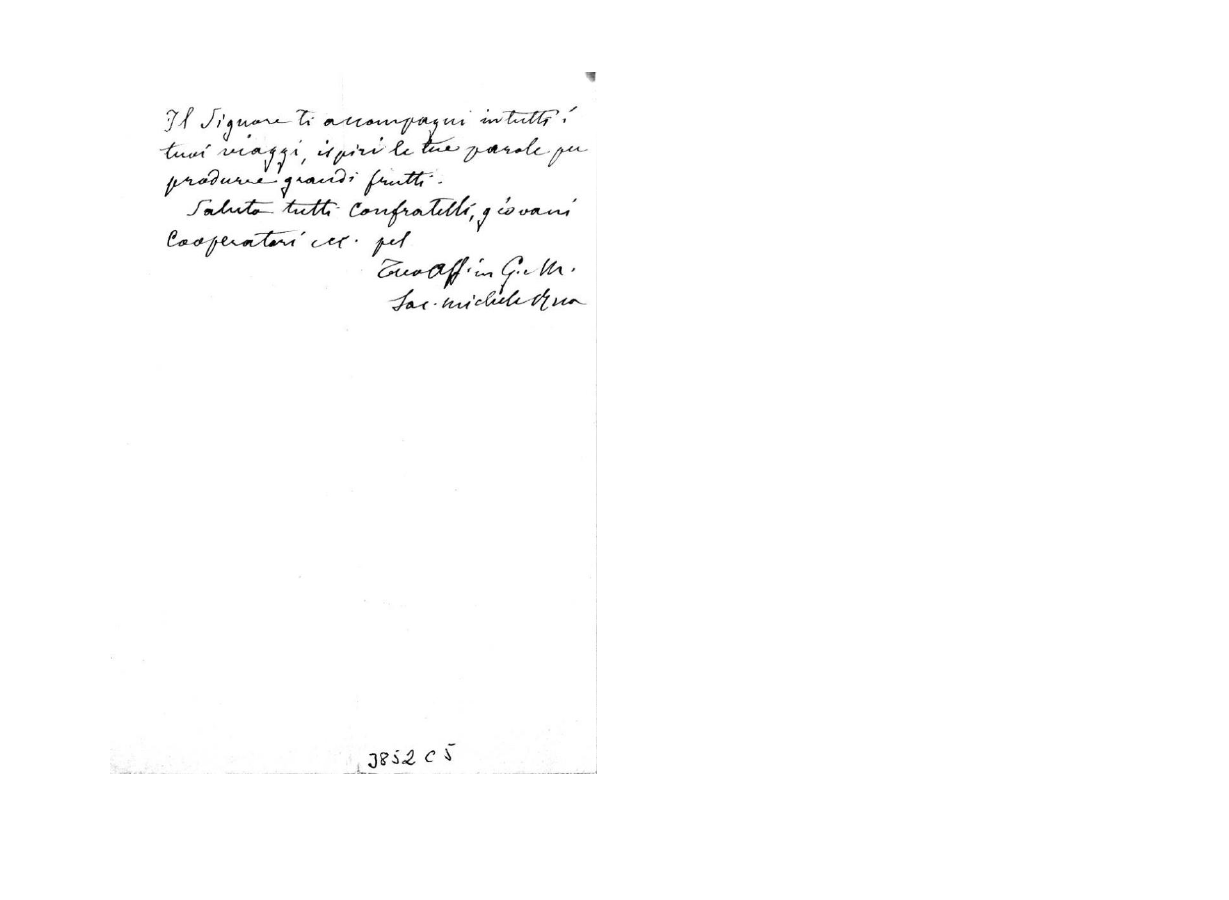 Il Signore ti accompagni in tutti i
tuoi viaggi, ispiri le tue parole per
produrre grandi frutti.
Saluta tutti Confratelli, giovani
Cooperatori ecc. pel
Tuo Aff.in G. e M.
Sac. Michele Rua
3852 C 5